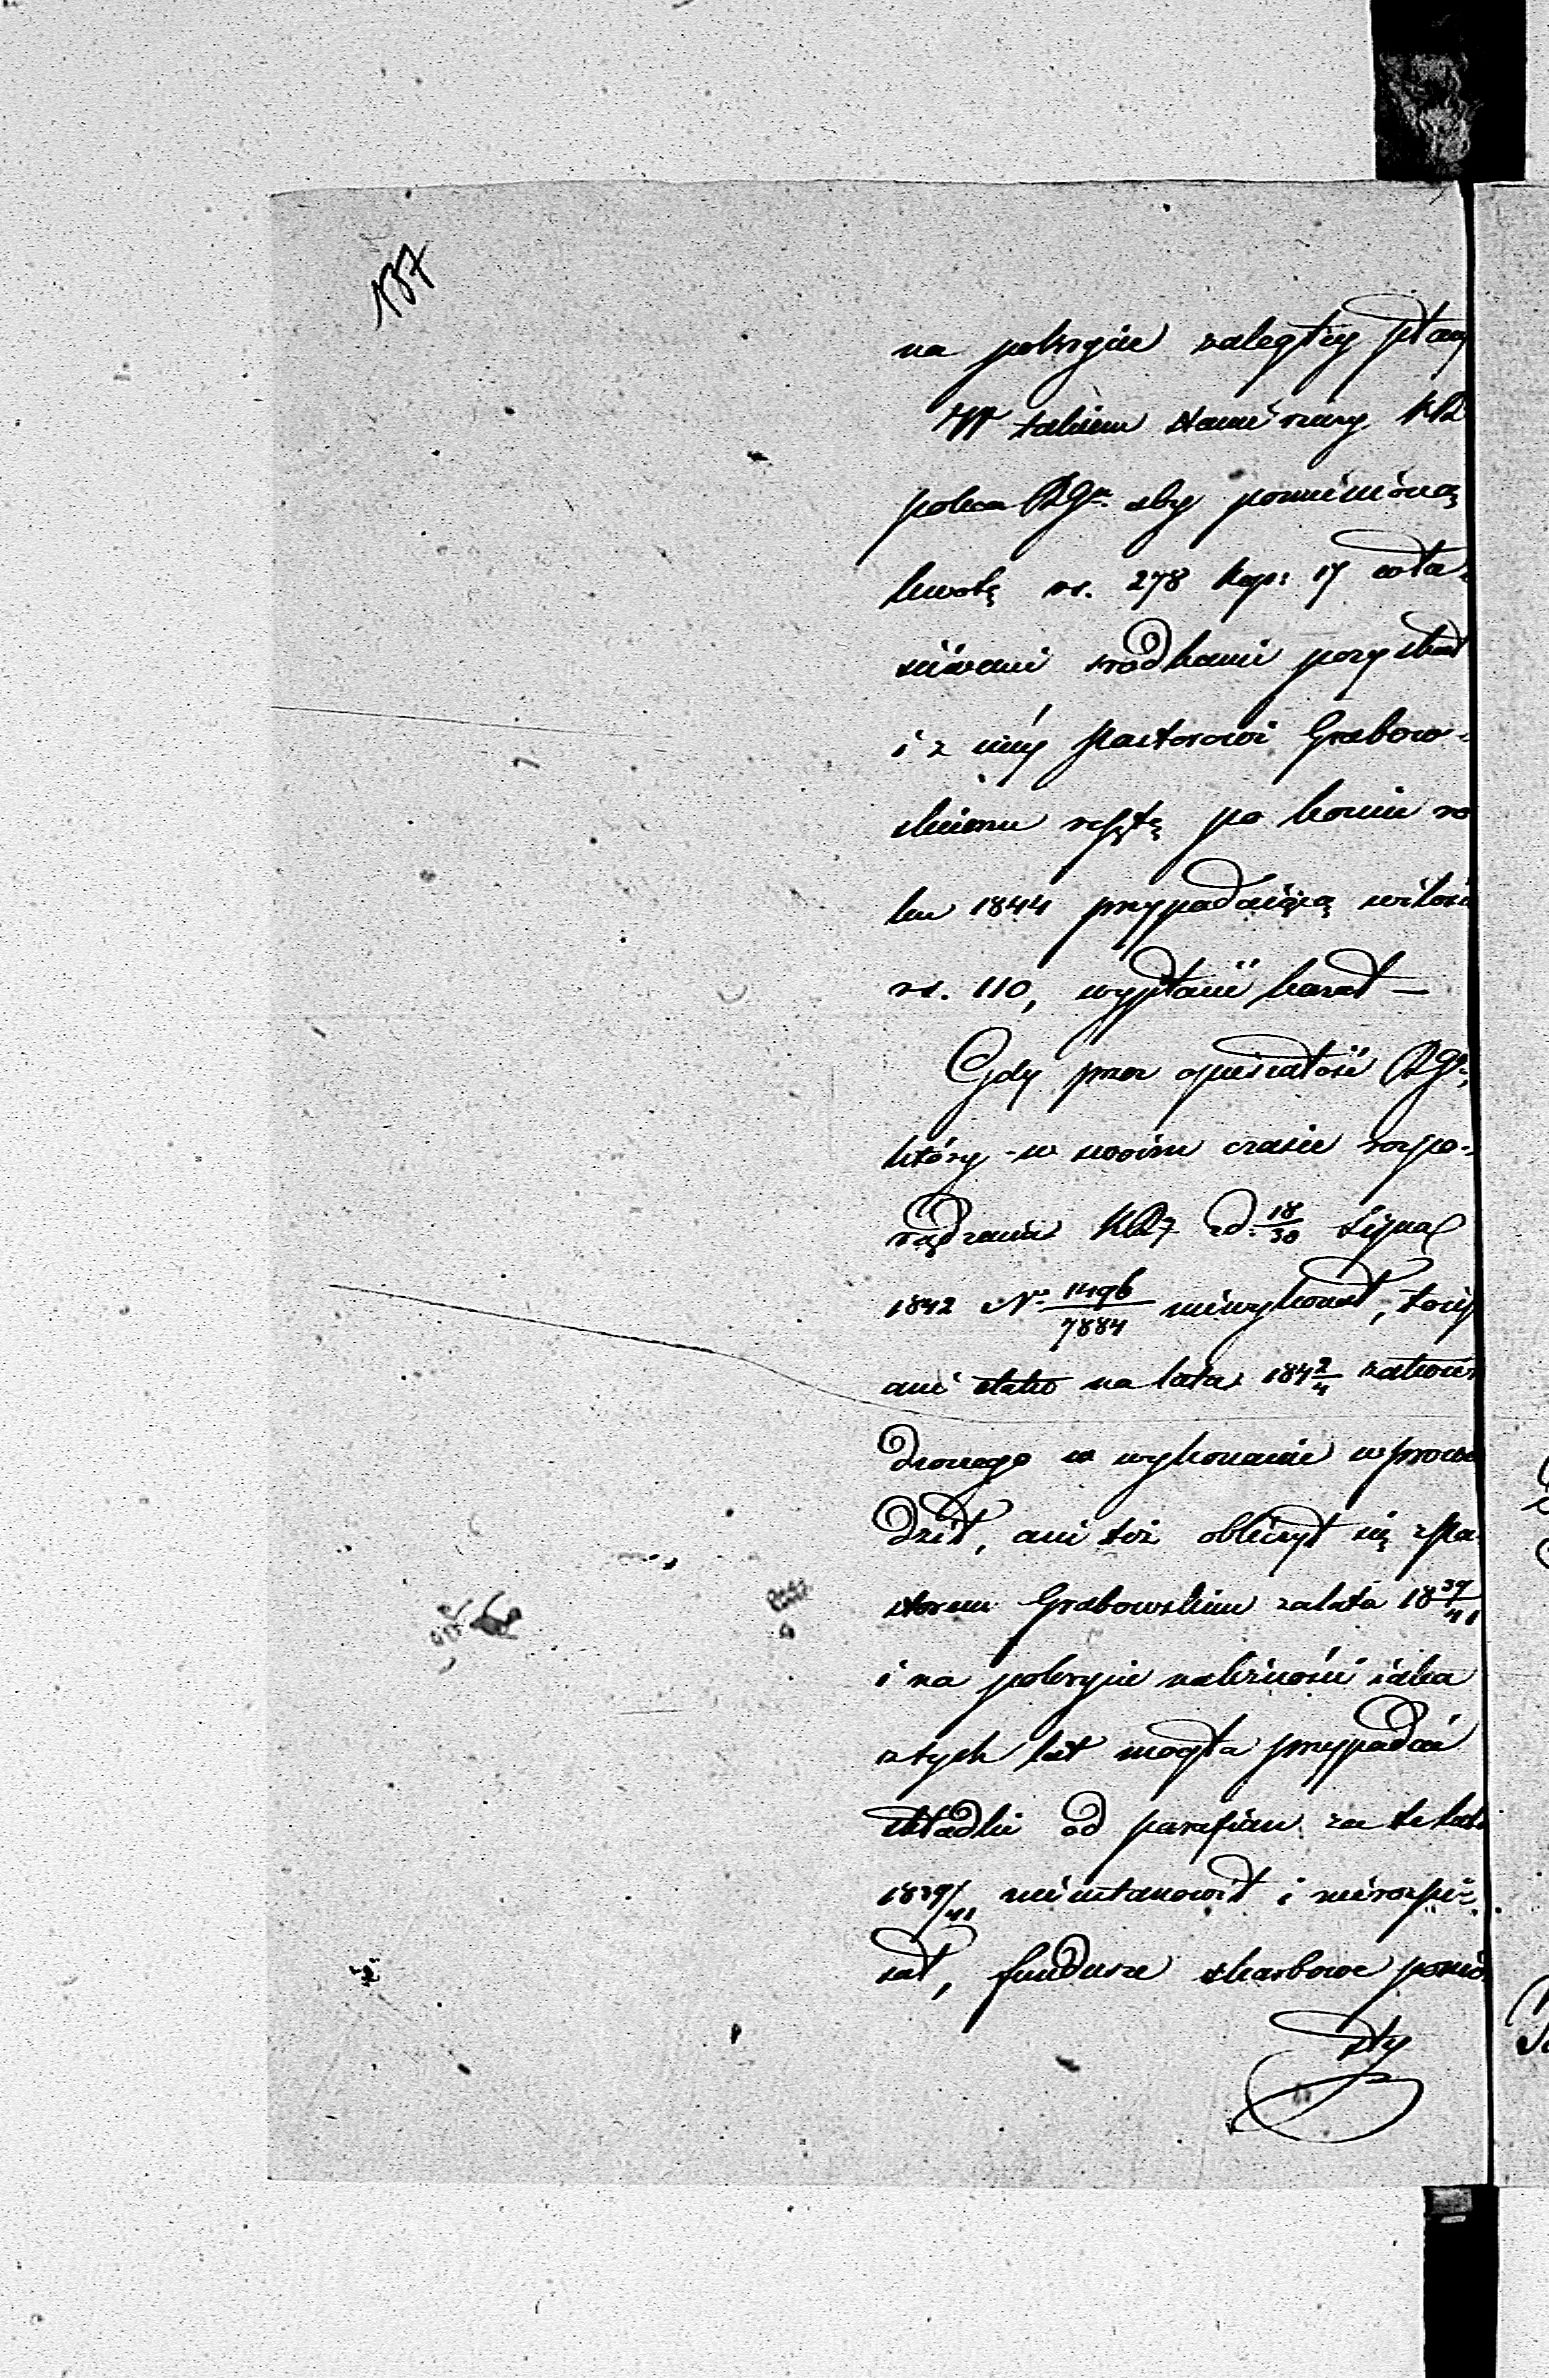 137
na pokrycie zaległey płacy
W takim stanie rzeczy KRS
poleca RGu. aby pomienioną
kwotę rs. 278 kop: 17 wła-
ściwemi srodkami pozyskał
i z niéy Pastorowi Grabow-
skiemu resztę po koniec ro
ku 1844 przypadaiącą w ilości
rs. 110, wypłacić kazał —
Gdy przez opieszałość RGu.
który w swoim czasie rozpo-
rządzenia z d. 18/30 Lipca
1842 No. 1496/7884 niewykonał, to iest
ani etatu na lata 184 2/4 zatwier
dzonego w wykonanie wprowa
dził, ani też obliczył się z Pa
storem Grabowskim za lata 18 39/41
i na pokrycie należności iaka
z tych lat mogła przypadać
składki od parafian za te lata
1839/41 nieustanowił i nierozpi-
sał, fundusze skarbowe ponio
sły